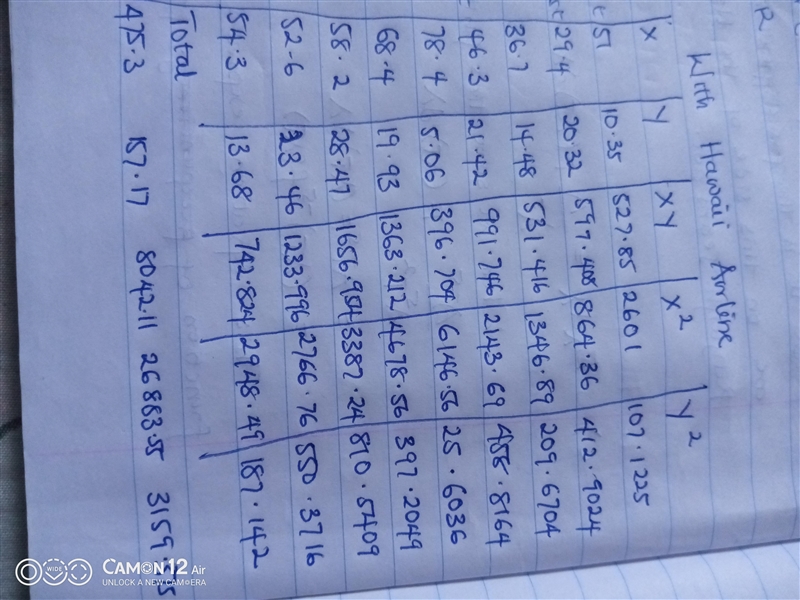 R
With Hawaii Airline
X Y XY X² Y²
51 10.35 527.85 2601 107.1225
29.4 20.32 597.408 864.36 412.9024
36.7 14.48 531.416 1346.89 209.6704
46.3 21.42 991.746 2143.69 458.8164
78.4 5.06 396.704 6146.56 25.6036
68.4 19.93 1363.212 4678.56 397.2049
58.2 28.47 1656.954 3387.24 810.5409
52.6 23.46 1233.996 2766.76 550.3716
54.3 13.68 742.824 2948.49 187.142
Total
475.3 157.17 8042.11 26883.55
CAMON 12 Air
UNLOCK A NEW CAMERA